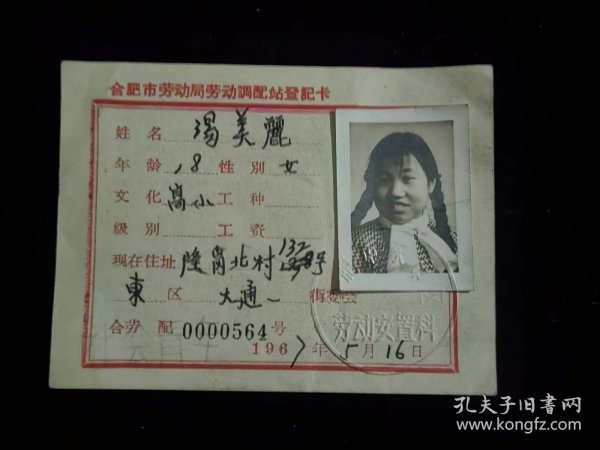 合肥市劳动局劳动調配站登記卡
姓 名 馮美麗
年 龄 18 性 别 女
文 化 高小 工 种
级 别 工 资
现在住址 陸崗北村132号
東 区 大通一 街委会
合劳 配 0000564 号
1967 年 5 月 16 日
劳动安置科
孔夫子旧书网
www.kongfz.com